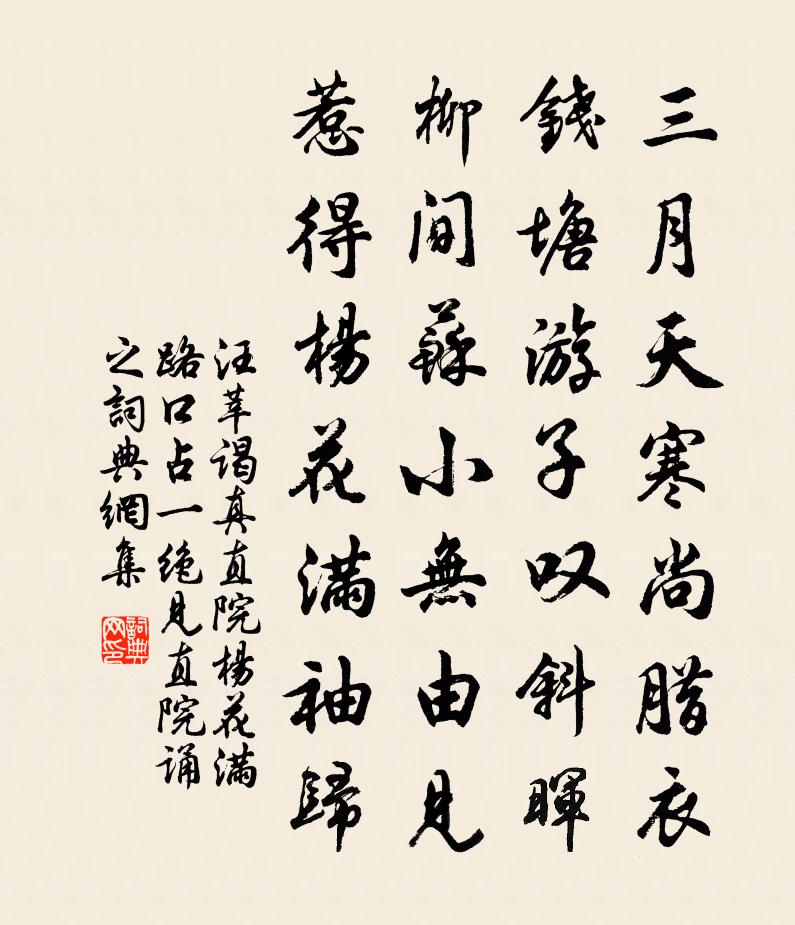 三月天寒尚腊衣
錢塘游子叹斜暉
柳间蘇小無由見
惹得楊花滿袖歸
汪莘谒真直院楊花滿
路口占一绝見直院诵
之詞典網集
詞典网印